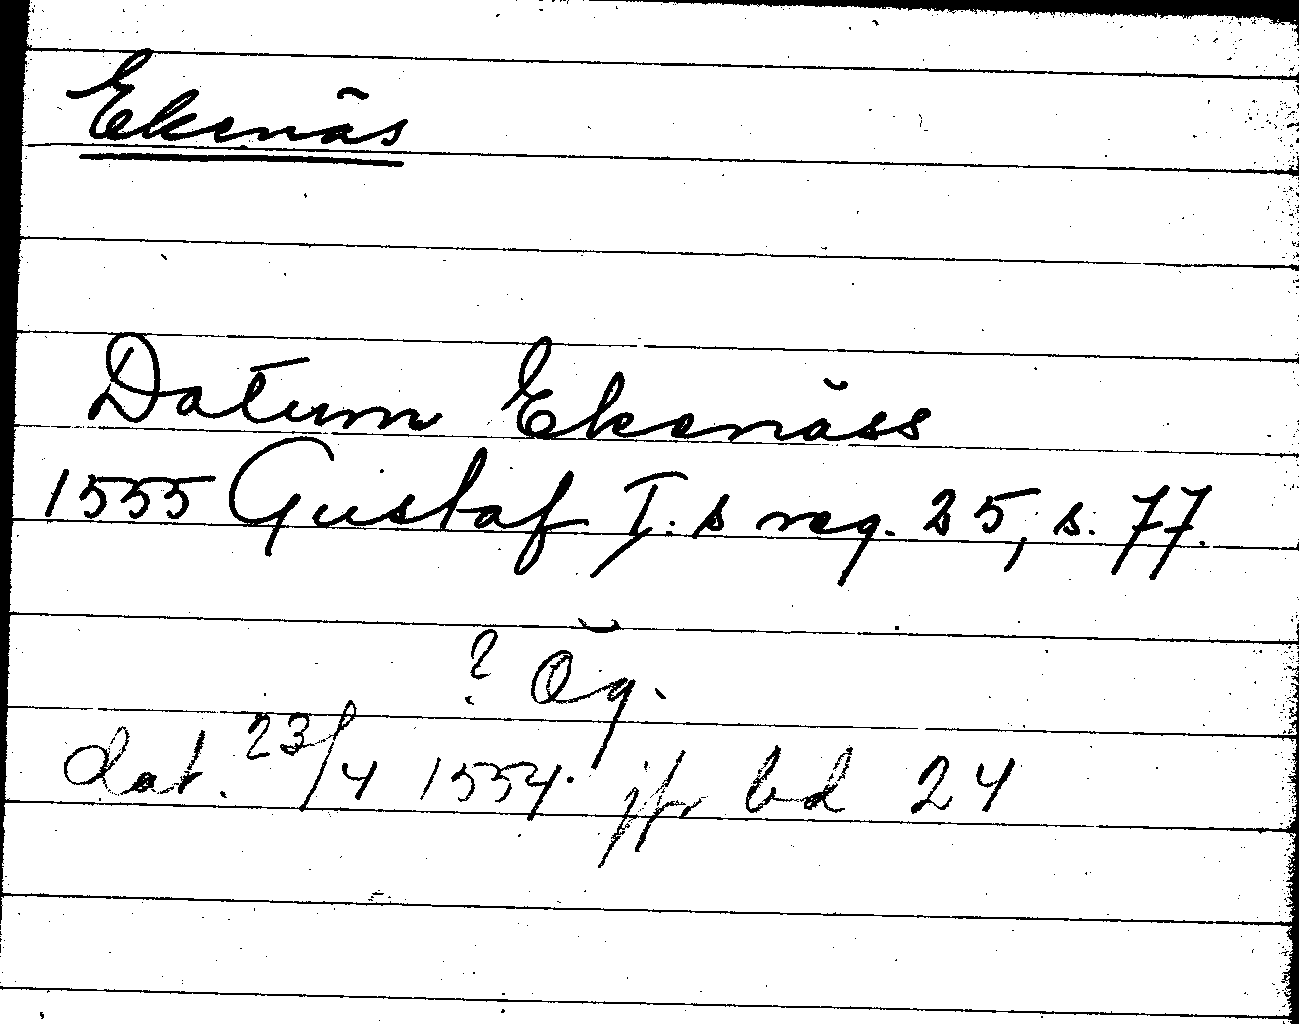 Ekenäs
Datum Ekenäss
1555 Gustaf I:s reg. 25, s. 77.
? Ög.
dat. 23/4 1554. jfr bd 24